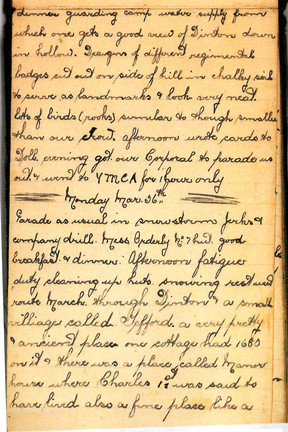 dinner guarding camp water supply from
which one gets a good view of Dinton down
in hollow. Designs of different regimental
badges cut out on side of hill in chalky soil
to serve as landmarks & look very neat.
lots of birds (rooks) similar to though smaller
than our afternoon wrote cards to
Doll, evening got our Corporal to parade us
out & went to YMCA for 1 hour only
Monday Mar. 26th
Parade as usual in snow storm Jerks &
company drill. Mess Orderly No 7 hut. good
breakfast & dinner. Afternoon fatigue
duty cleaning up huts, snowing rest went
route March through Dinton & a small
village called Tefford a very pretty
& ancient place one cottage had 1680
on it & there was a place called Manor
house where Charles 1st was said to
have lived also a fine place like a